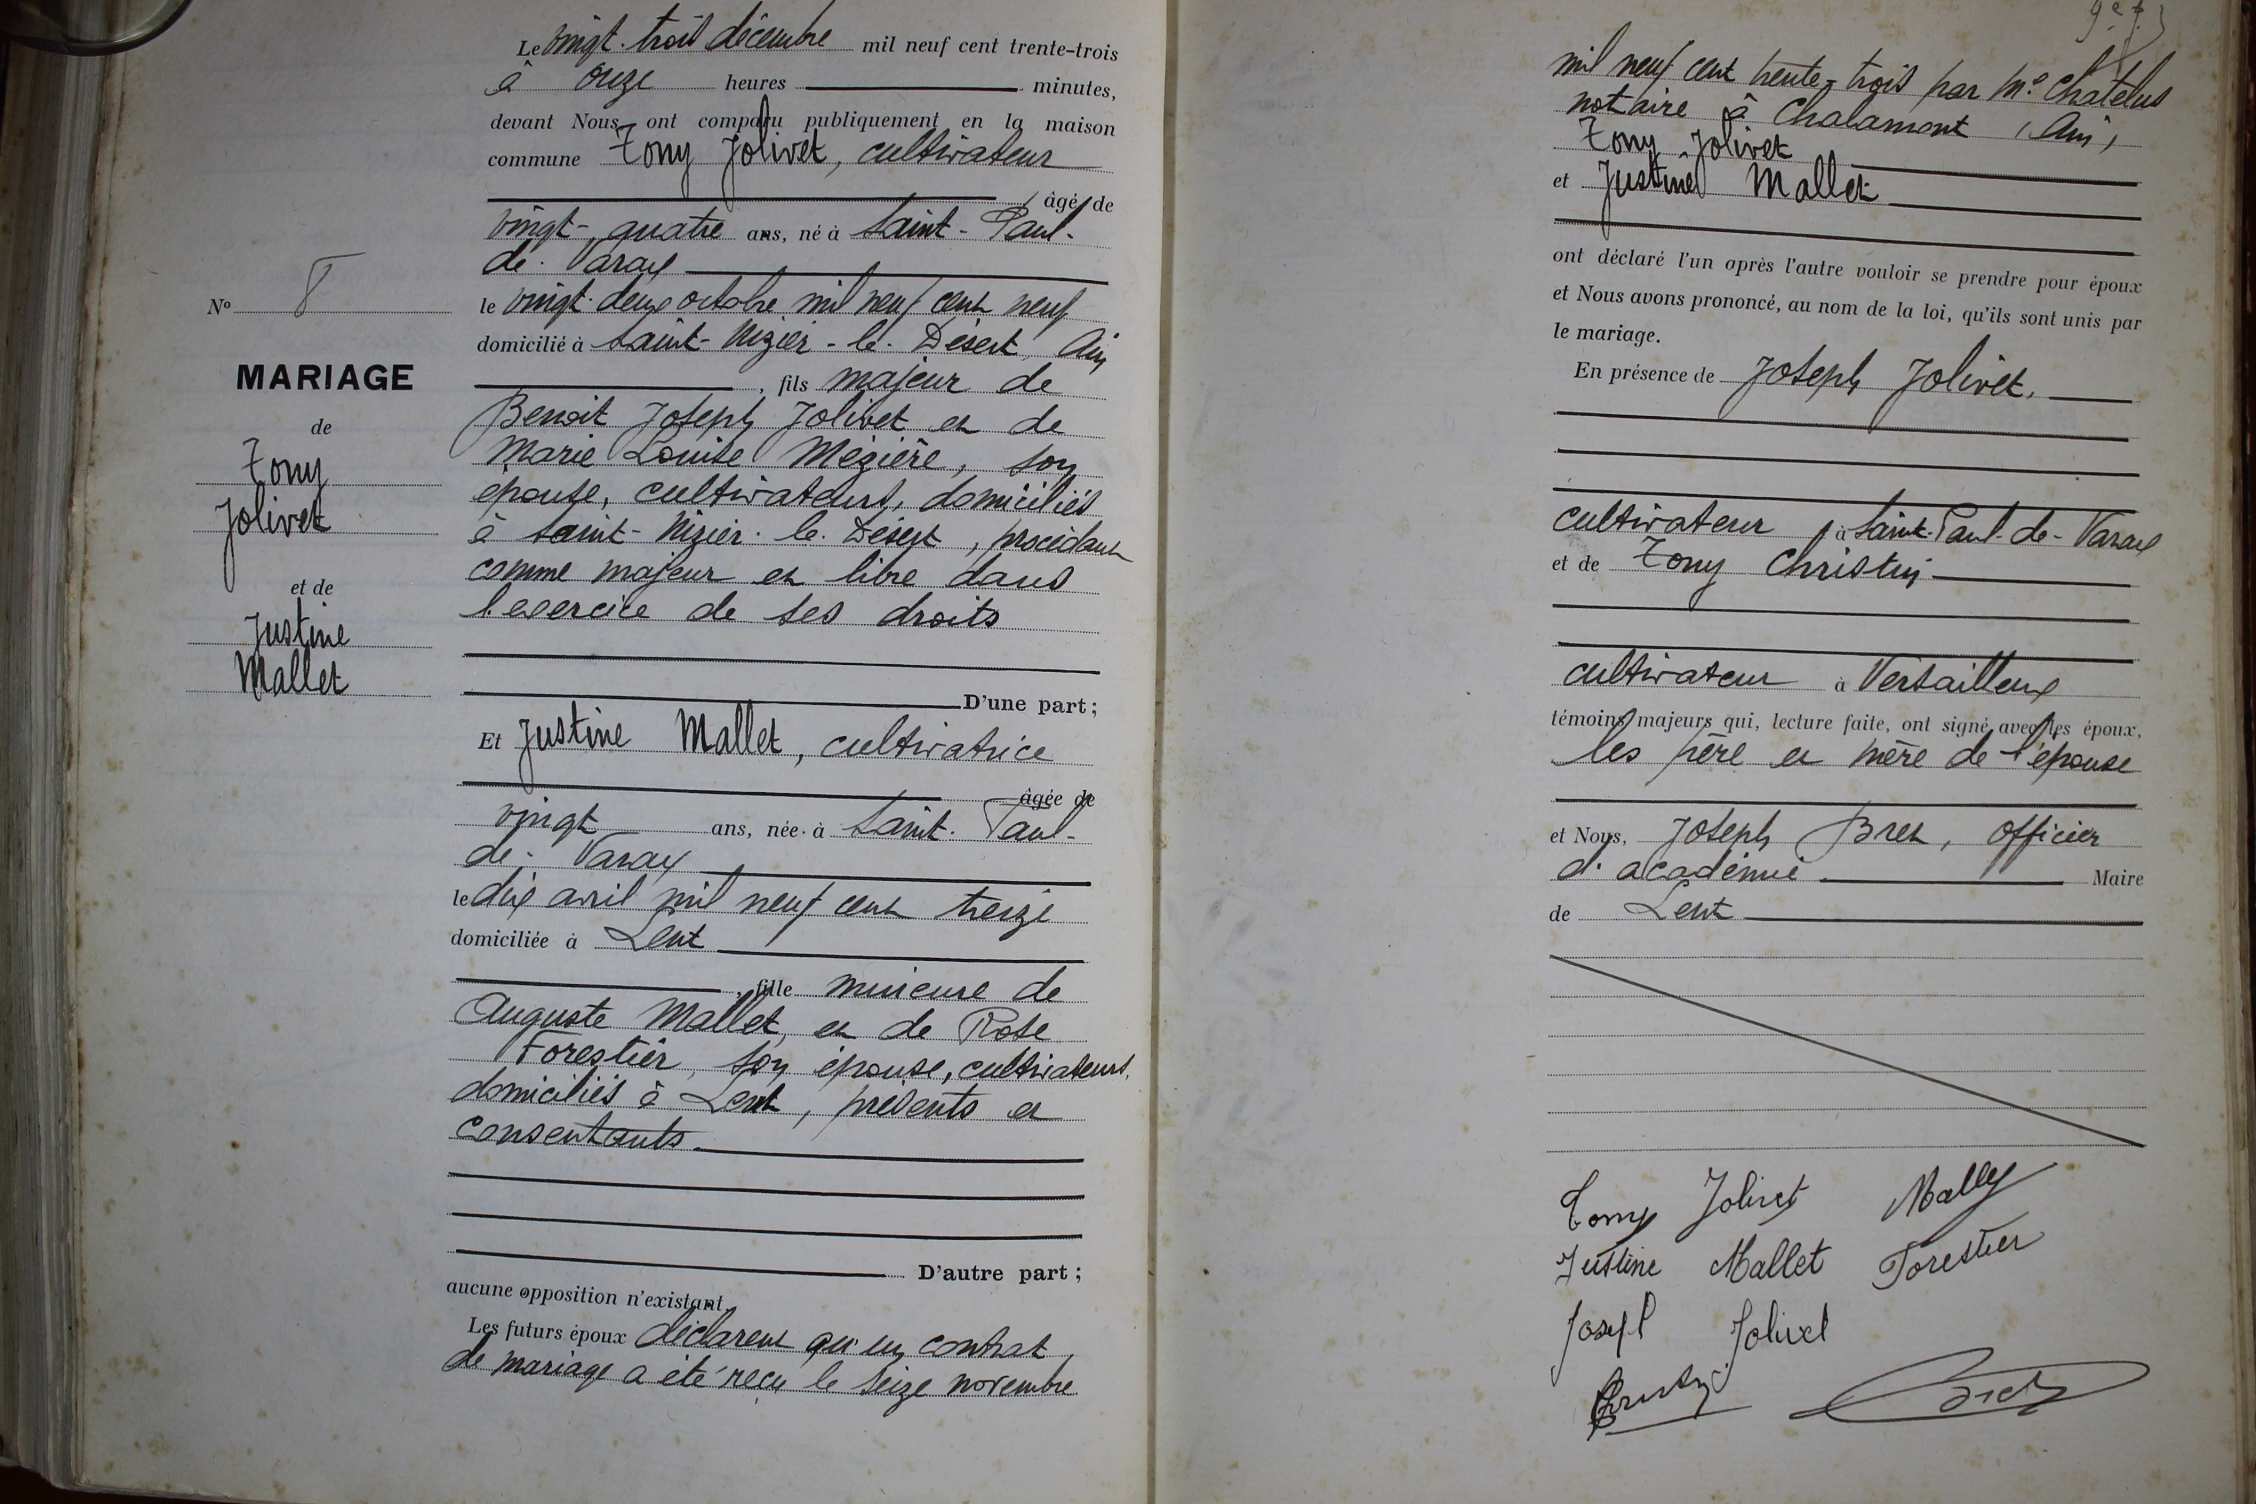 N° 8
MARIAGE
de
Tony
Jolivet
et de
Justine
Mallet
Le vingt-trois décembre mil neuf cent trente-trois
à onze heures minutes,
devant Nous, ont comparu publiquement en la maison
commune Tony Jolivet, cultivateur
âgé de
vingt-quatre ans, né à Saint-Paul-
de-Varax
le vingt-deux octobre mil neuf cent neuf
domicilié à Saint-Nizier-le-Désert, Ain
, fils majeur de
Benoît Joseph Jolivet et de
Marie Louise Mézière, son
épouse, cultivateurs, domiciliés
à Saint-Nizier-le-Désert, procédant
comme majeur et libre dans
l'exercice de ses droits
D'une part;
Et Justine Mallet, cultivatrice
âgée de
vingt ans, née à Saint-Paul-
de-Varax
le dix avril mil neuf cent treize
domiciliée à Lent
, fille mineure de
Auguste Mallet, et de Rose
Forestier, son épouse, cultivateurs,
domiciliés à Lent, présents et
consentants
D'autre part;
aucune opposition n'existant.
Les futurs époux déclarent qu'un contrat
de mariage a été reçu le seize novembre
mil neuf cent trente-trois par Me Chatelus
notaire à Chalamont (Ain)
Tony Jolivet
et Justine Mallet
ont déclaré l'un après l'autre vouloir se prendre pour époux
et Nous avons prononcé, au nom de la loi, qu'ils sont unis par
le mariage.
En présence de Joseph Jolivet,
cultivateur à Saint-Paul-de-Varax
et de Tony Christin
cultivateur à Versailleux
témoins majeurs qui, lecture faite, ont signé avec les époux,
les père et mère de l'épouse
et Nous, Joseph Bret, officier
d'académie Maire
de Lent
Tony Jolivet Mallet
Justine Mallet Forestier
Joseph Jolivet
Christin Bret